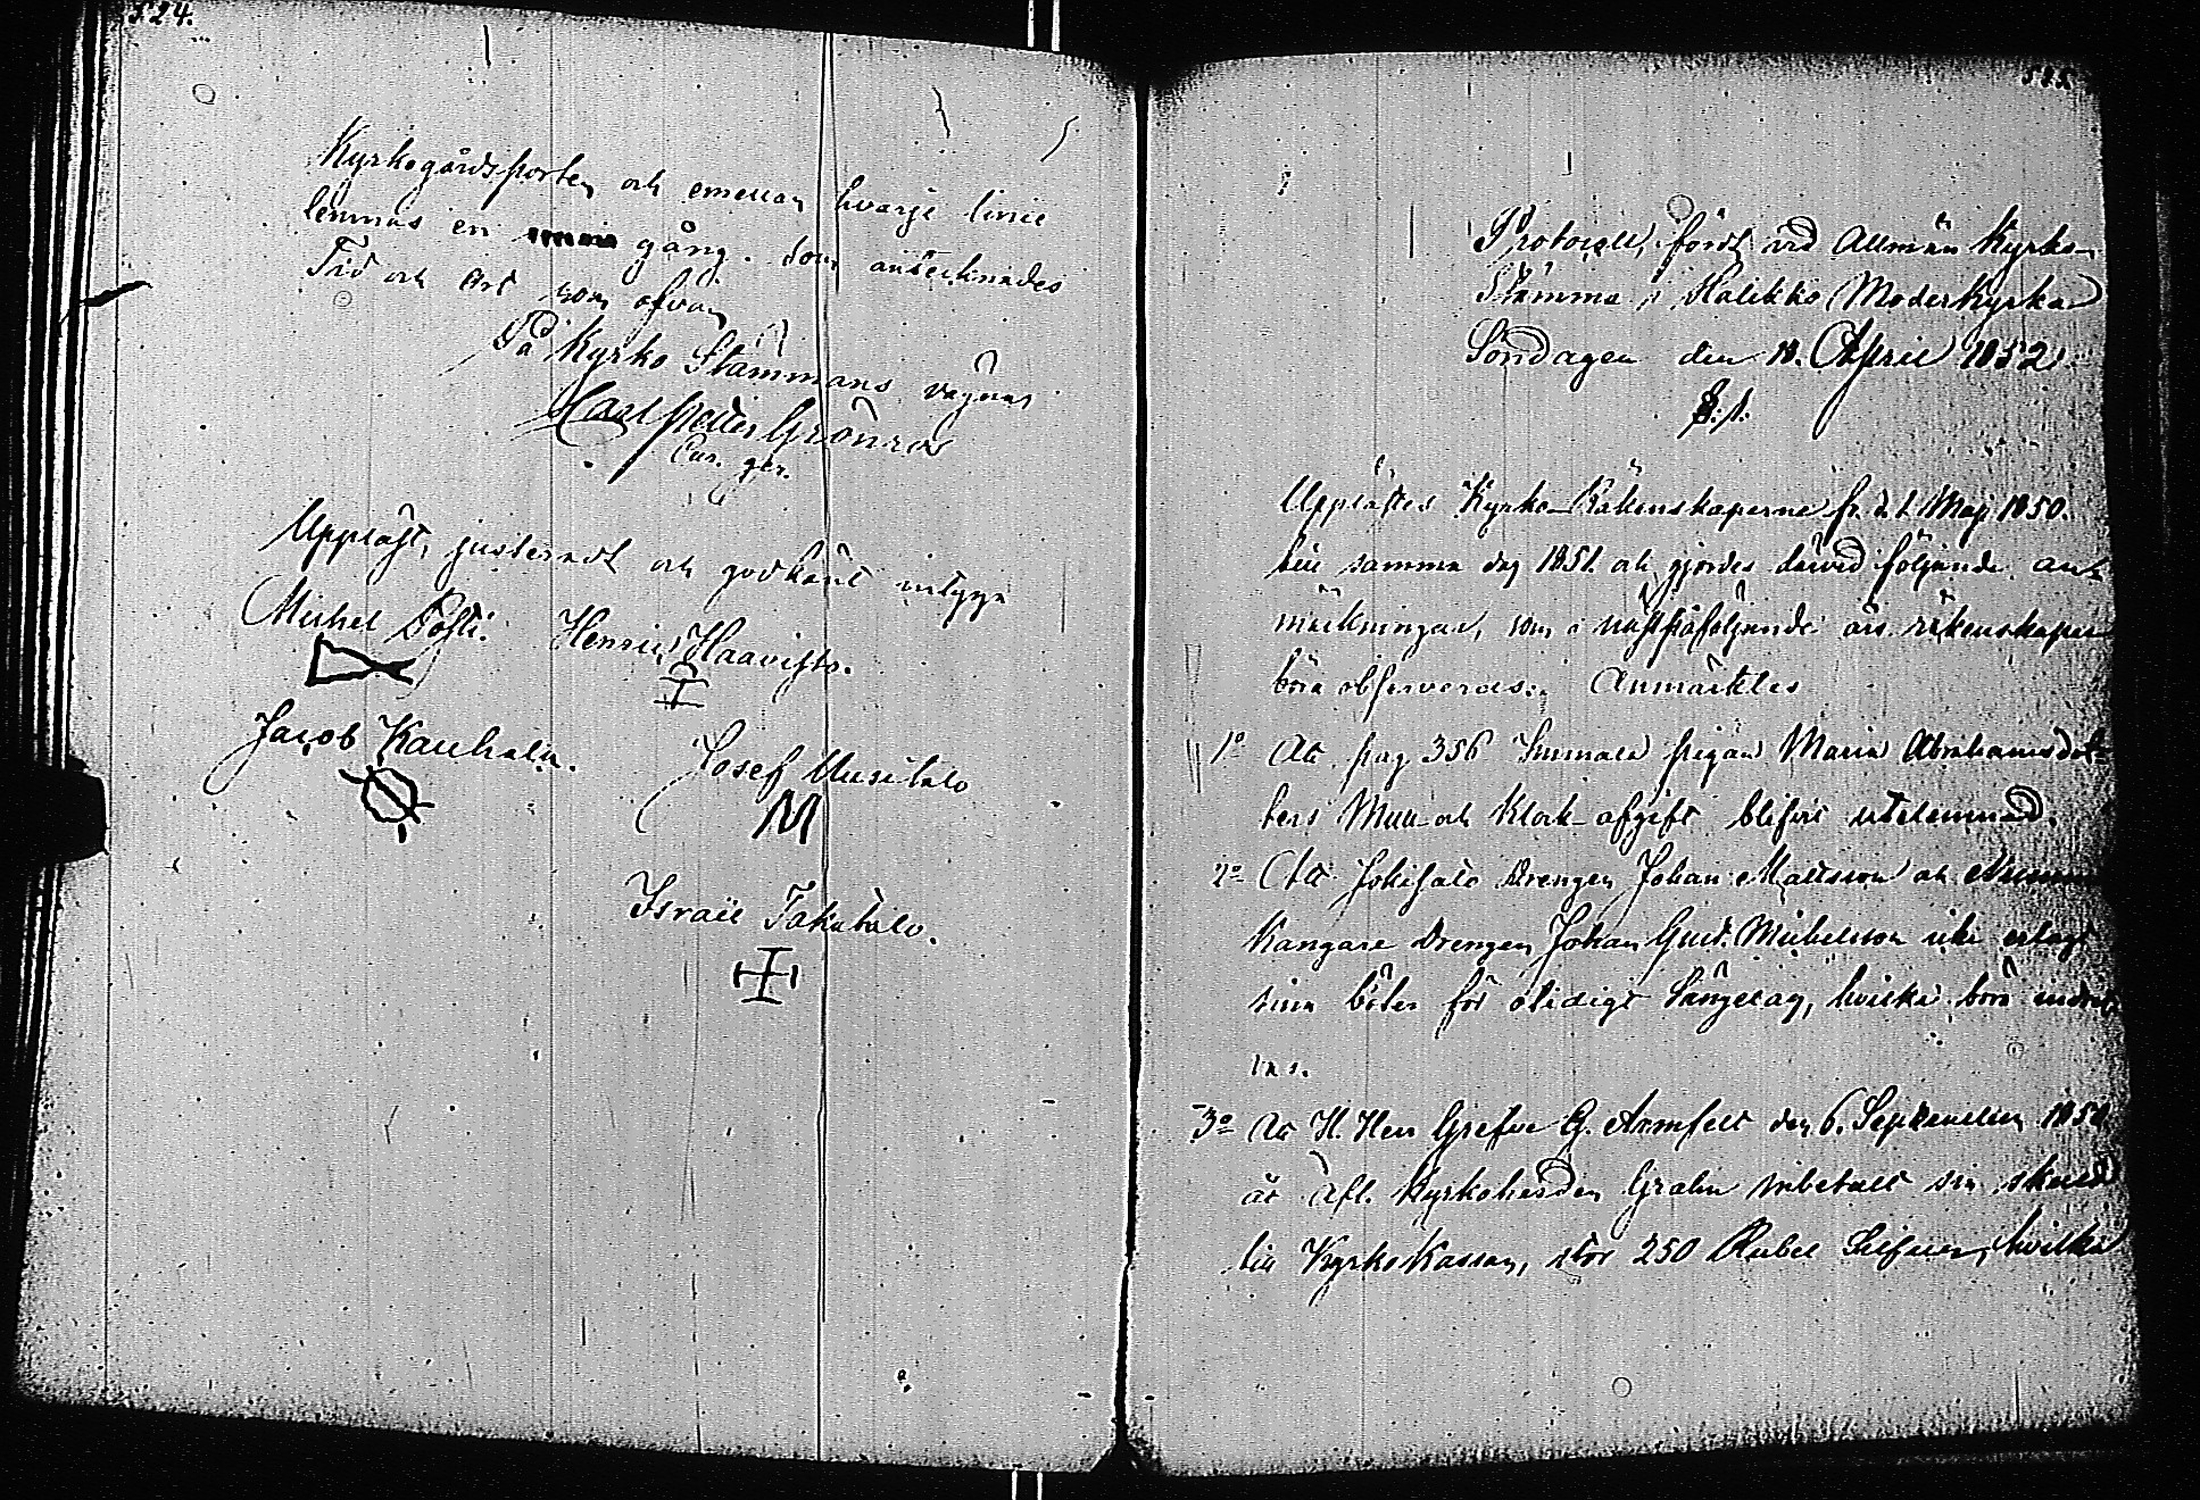 524.
Kyrkogårdsporten och emellan hvarje linie
lemnas en gång. Som antecknades
Tid och Ort som ofvan
På Kyrko Stämmans vägnar
Carl Petter Grönroos
Upplåst, justeradt och godkänt intyga
Michel Posti. Henric Haavisto.
Jacob Kauhala.
Josef Uusitalo
M
Israel Takatalo.
525
Protocoll, fördt vid Allmän Kyrko-
Stämma i Halikko Moderkyrka
Söndagen den 18. April 1852.
§. 1.
Upplästes Kyrko-Räkenskaperne fr. d. 1 Maji 1850.
till samma dag 1851. och gjordes därvid följande an-
märkningar, som i nästpåföljande års räkenskaper
böra observeras: Anmärktes
1º At pag. 356 pigan Maria Abrahamsdot-
ters Mull och Klock-afgift blifvit utelemnad.
2º Att Jokisalo Drengen Johan Mattsson och
Kangare Drengen Johan Gust. Michelsson icke erlagt
sina böter för otidigt Sängelag, hvilka böra indrif-
vas.
3º At H. Herr Grefve G. Armfelt den 6. September 1850
åt Afl. Kyrkoherden Grahn inbetalt sin skuld
till Kyrko Kassan, stor 250 Rubel Silfver, hvilka